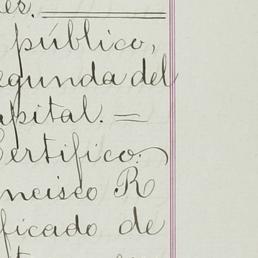 es.
público,
egunda del
apital. =
Certifico:
ncisco R
ficado de